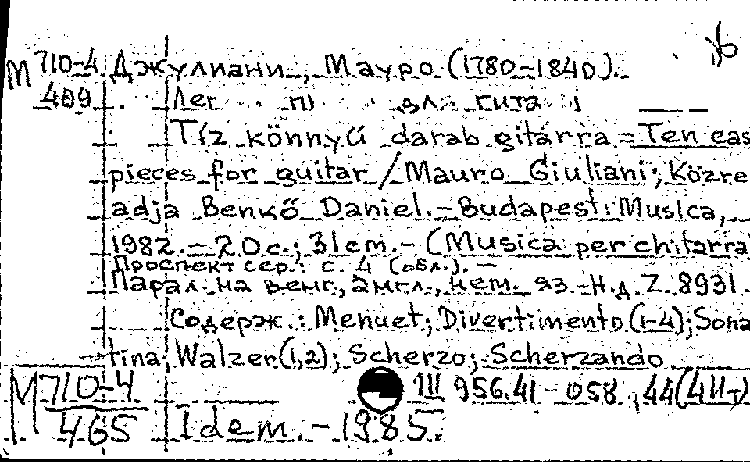 М 710-4 Джулиани, Мауро (1780-1840).
409 для гита
Tíz könnyű darab gitárra = Ten eas
pieces for guitar / Mauro Giuliani; Közre
adja Benkő Daniel. - Budapest: Musica,
1982. - 20 с.; 31 см. - (Musica per chitarra
Проспект сер.: с. 4 (обл.). -
Парал. на венг., англ., нем. яз. - Н.д. Z. 8931.
Содерж.: Menuet; Divertimento (1-4); Sona
tina; Walzer (1,2); Scherzo; Scherzando
М 710-4 III 956.41-058.,44(4
465 Idem. - 1985.